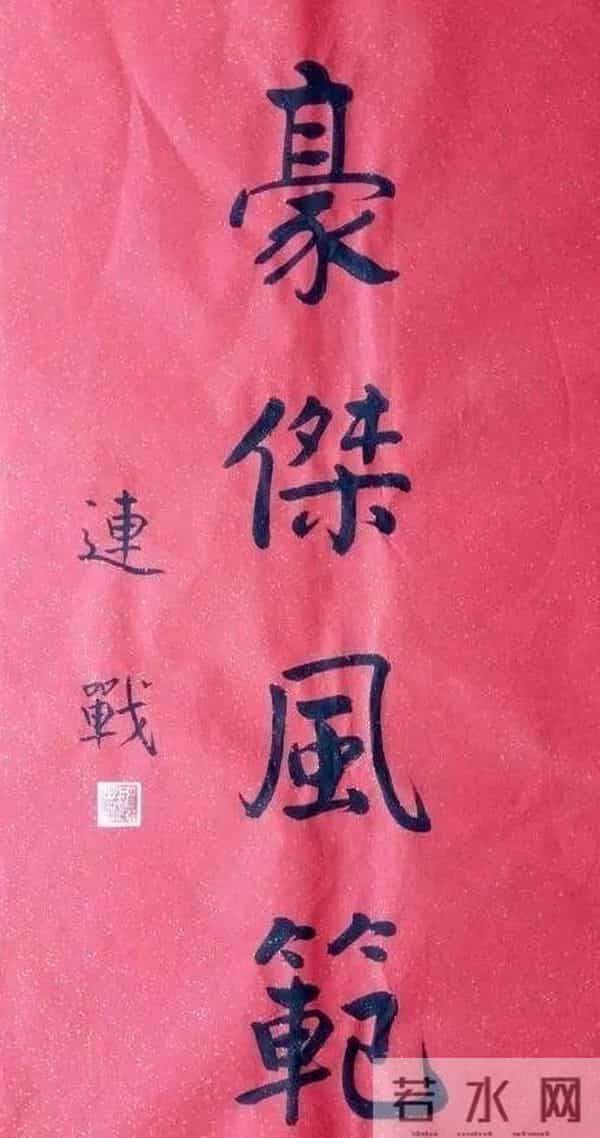 豪傑風範
連戰
若水网